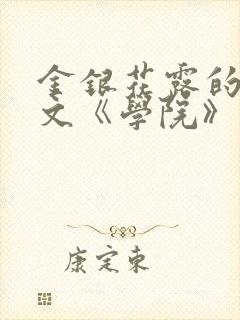 金银花露的
文《學院》
康定東